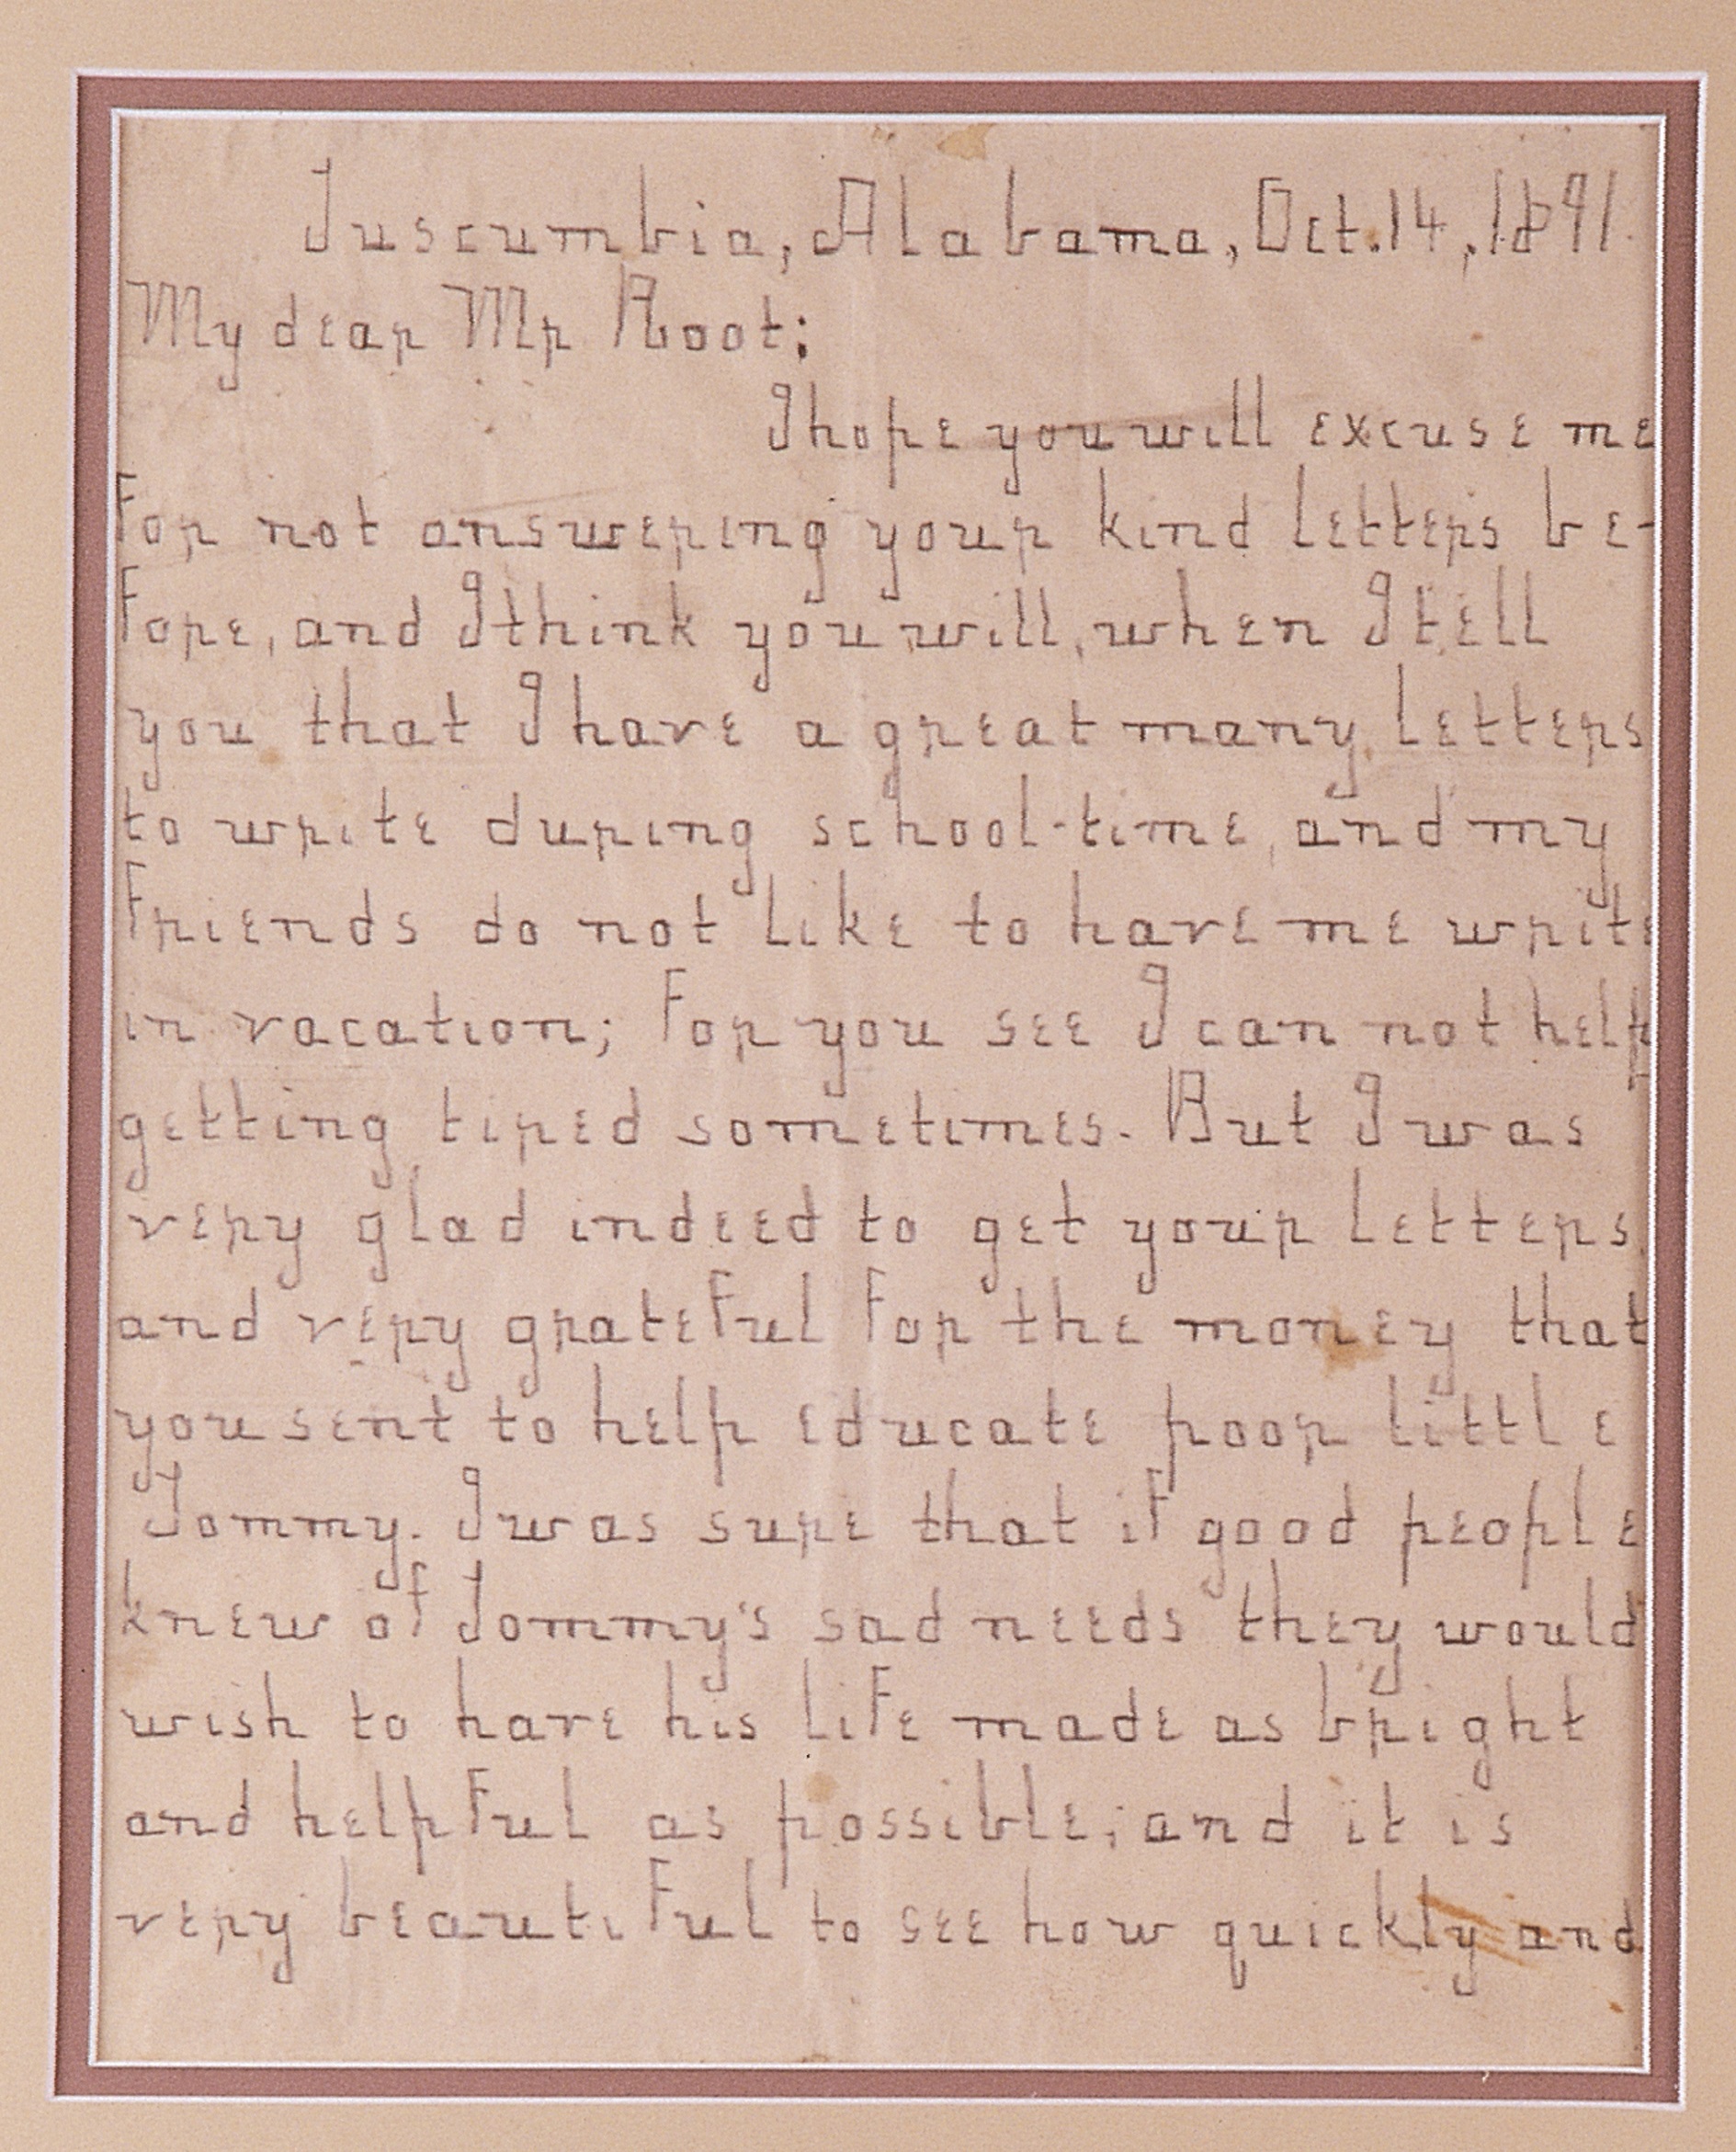 Tuscumbia, Alabama, Oct. 14, 1891.
My dear Mr Root:
I hope you will excuse me
for not answering your kind letters be-
fore, and I think you will, when I tell
you that I have a great many letters
to write during school-time, and my
friends do not like to have me write
in vacation; for you see I can not help
getting tired sometimes. But I was
very glad indeed to get your letters,
and very grateful for the money that
you sent to help educate poor little
Tommy. I was sure that if good people
knew of Tommy's sad needs they would
wish to have his life made as bright
and helpful as possible; and it is
very beautiful to see how quickly and